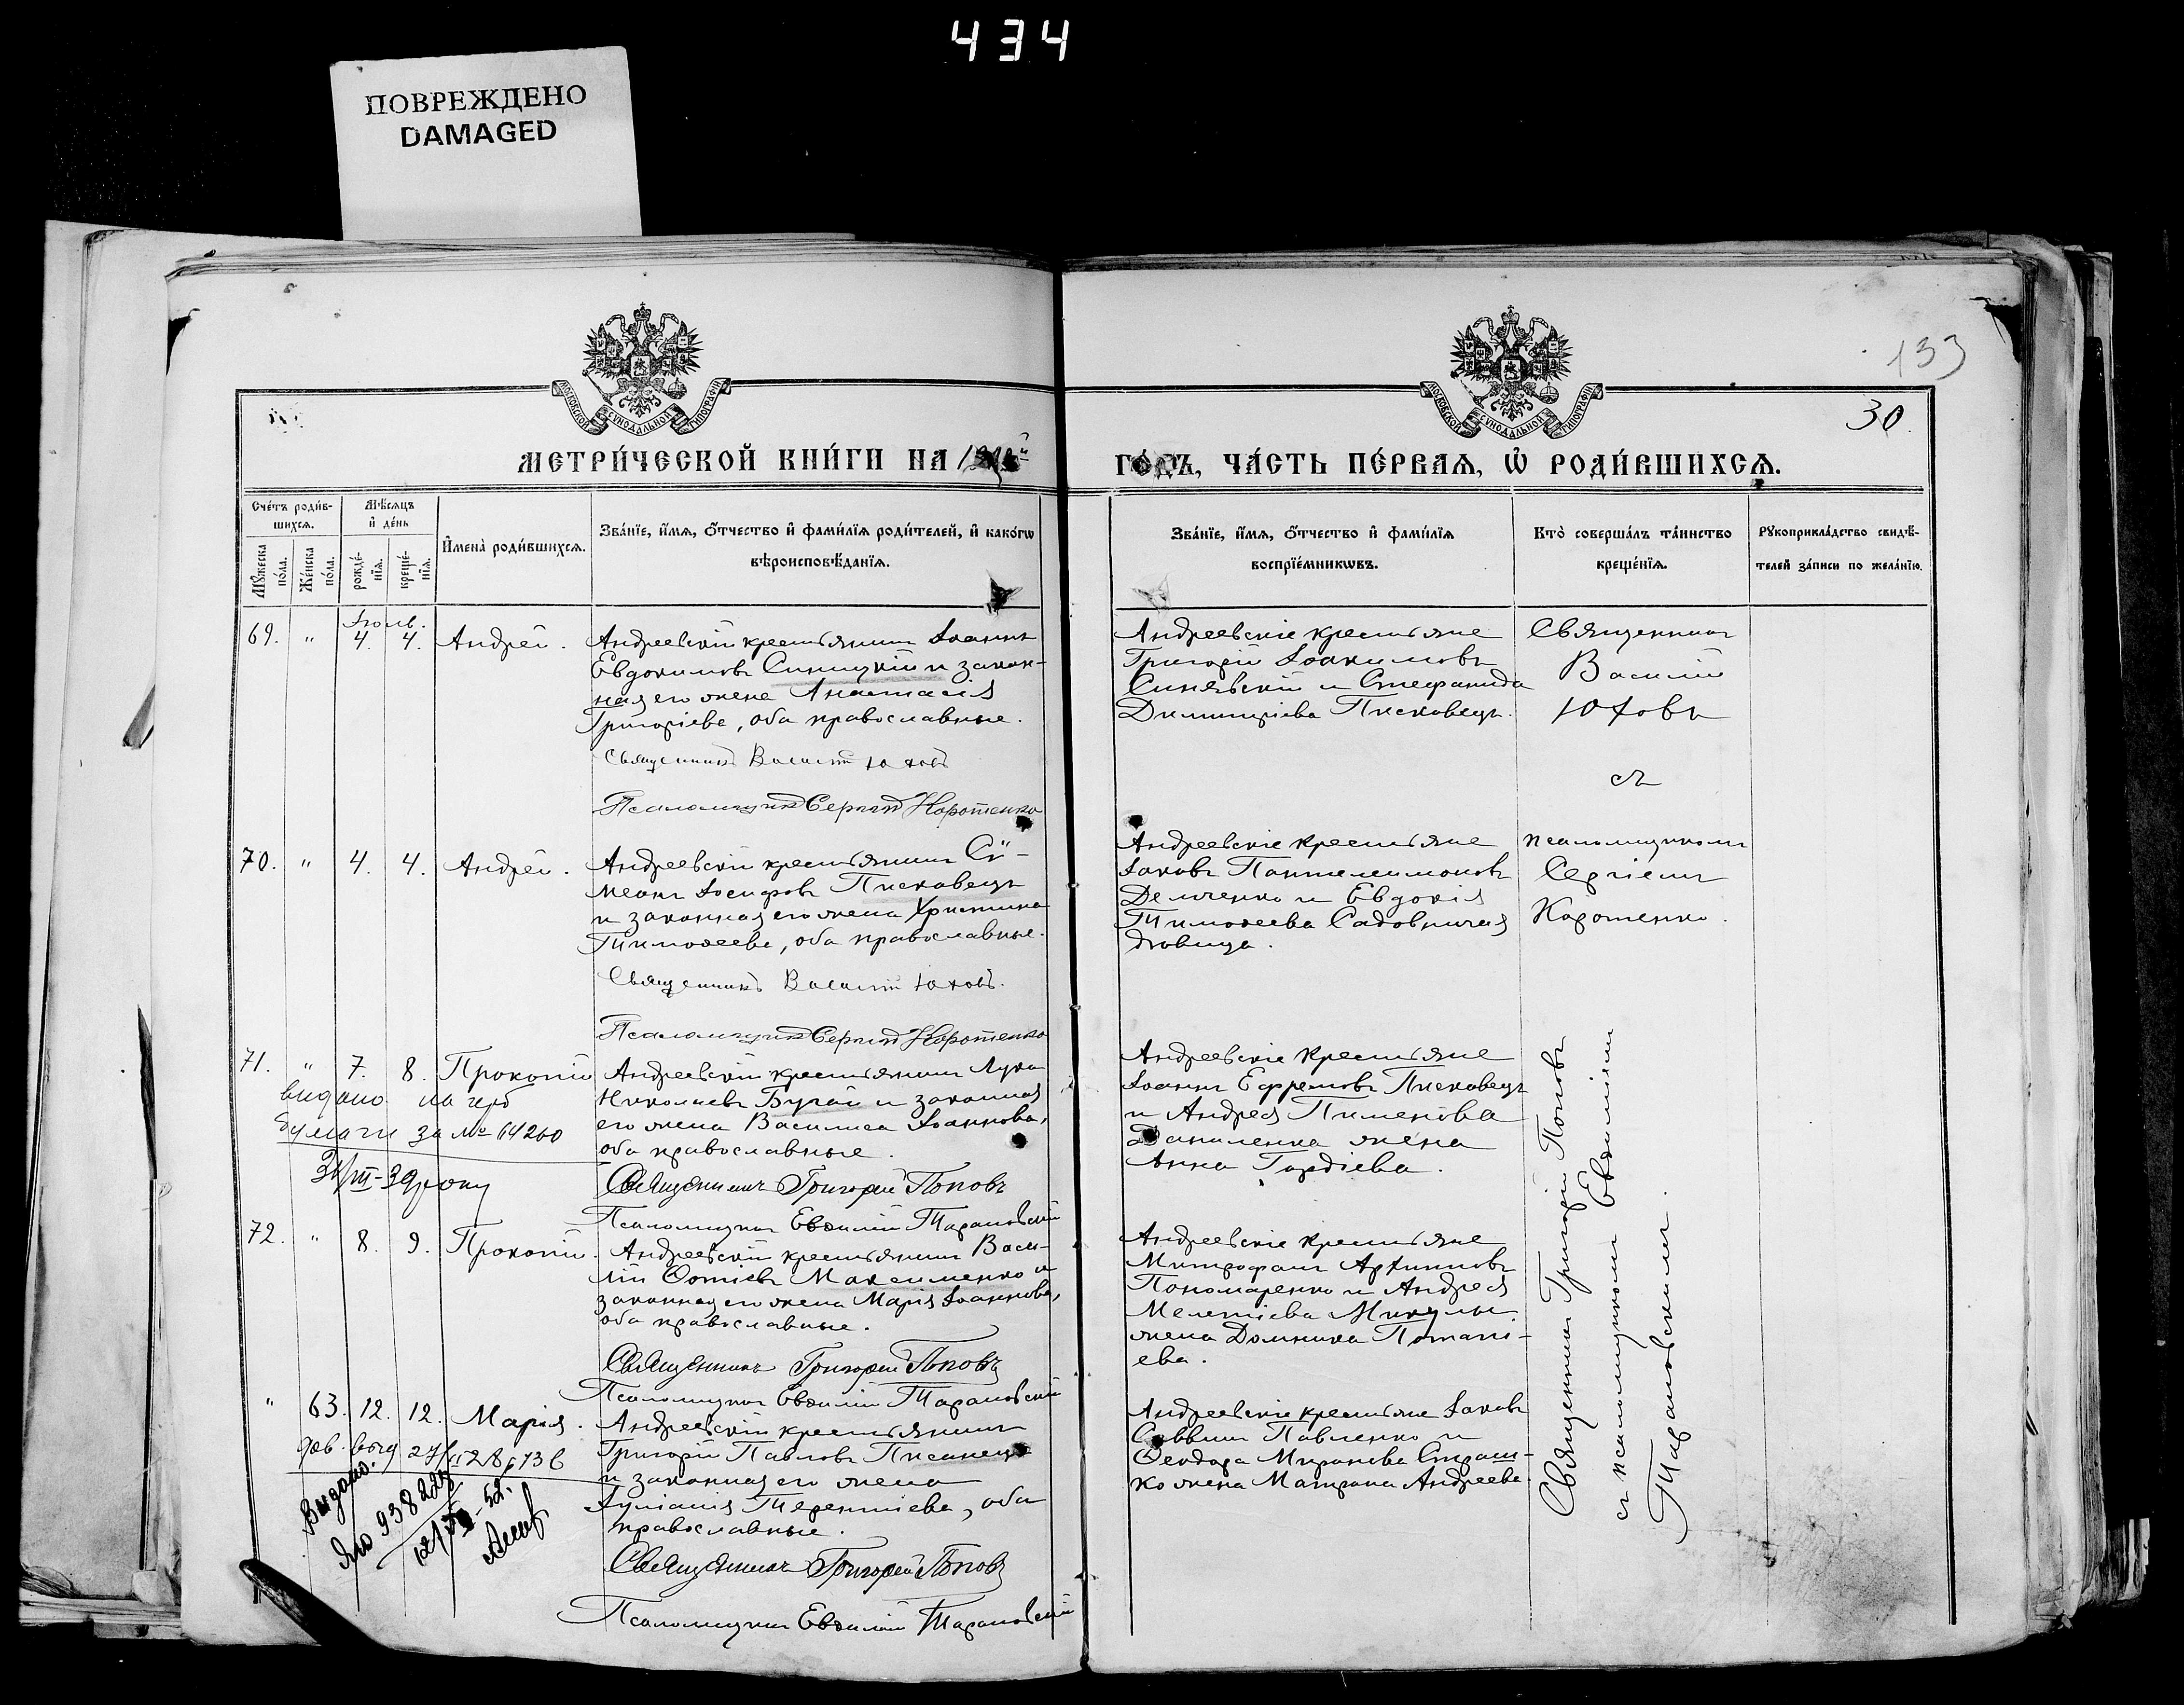 434
ПОВРЕЖДЕНО
DAMAGED
133
30.
МОСКОВСКОЙ СѴНОДАЛЬНОЙ ТИПОГРАФІИ
МОСКОВСКОЙ СѴНОДАЛЬНОЙ ТИПОГРАФІИ
МЕТРИ́ЧЕСКОЙ КНИ́ГИ НА
ГО́ДЪ, ЧА́СТЬ ПЕ́РВАЯ, Ѡ҆ РОДИ́ВШИХСѦ.
Сче́тъ роди́в-
шихсѧ.
Мꙋ́жеска по́ла.
Же́нска по́ла.
Мѣ́сѧцъ и҆ де́нь
рожде́-нїѧ.
креще́-нїѧ.
И҆мена̀ роди́вшихсѧ.
Зва́нїе, и҆́мѧ, ѻ҆́тчество и҆ фами́лїѧ роди́телей, и҆ како́гѡ
вѣроисповѣ́данїѧ.
Зва́нїе, и҆́мѧ, ѻ҆́тчество и҆ фами́лїѧ
воспрїе́мникѡвъ.
Кто̀ соверша́лъ та́инство
креще́нїѧ.
Рꙋкоприкла́дство свидѣ́-
телей за́писи по жела́нїю.
Іюль.
69. " 4. 4. Андрей.
Андреевскій крестьянинъ Іоаннъ
Евдокимовъ Синицкій и закон-
ная его жена Анастасія
Григоріева, оба православные.
Священникъ Василій Юховъ
Псаломщикъ Сергій Коротенко
Андреевскіе крестьяне
Григорій Іоакимовъ
Синявскій и Стефанида
Димитріева Писковецъ.
Священникъ
Василій
Юховъ
съ
псаломщикомъ
Сергіемъ
Коротенко.
70. " 4. 4. Андрей.
Андреевскій крестьянинъ Сѵ-
меонъ Іосифовъ Писковецъ
и законная его жена Христина
Тимоѳеева, оба православные.
Священникъ Василій Юховъ.
Псаломщикъ Сергій Коротенко
Андреевскіе крестьяне
Іаковъ Пантелеимоновъ
Демченко и Евдокія
Тимоѳеева Садовничая
вдовица.
71. " 7. 8. Прокопій
видано на герб
бумаги за № 64260
31/III-39 року
Андреевскій крестьянинъ Лука
Николаевъ Бугай и законная
его жена Василиса Іоаннова,
оба православные.
Священникъ Григорій Поповъ
Псаломщикъ Евѳимій Тарановскій
Андреевскіе крестьяне
Іоаннъ Ефремовъ Писковецъ
и Андрея Пименова
Даниленка жена
Анна Гордіева.
72. " 8. 9. Прокопій.
Андреевскій крестьянинъ Васи-
лій Фотіевъ Максименко и
законная его жена Марія Іоаннова,
оба православные.
Священникъ Григорій Поповъ
Псаломщикъ Евѳимій Тарановскій
Андреевскіе крестьяне
Митрофанъ Архиповъ
Пономаренко и Андрея
Мелетіева Микулы
жена Домника Потапі-
ева.
" 63. 12. 12. Марія.
Видано.
938228
Андреевскій крестьянинъ
Григорій Павловъ Писанецъ
и законная его жена
Іуліанія Терентіева, оба
православные.
Священникъ Григорій Поповъ
Псаломщикъ Евѳимій Тарановскій
Андреевскіе крестьяне Іаковъ
Саввинъ Павленко и
Ѳеодора Миронова Страш-
ко жена Матрона Андреева.
Священникъ Григорій Поповъ
съ псаломщикомъ Евѳиміемъ
Тарановскимъ.